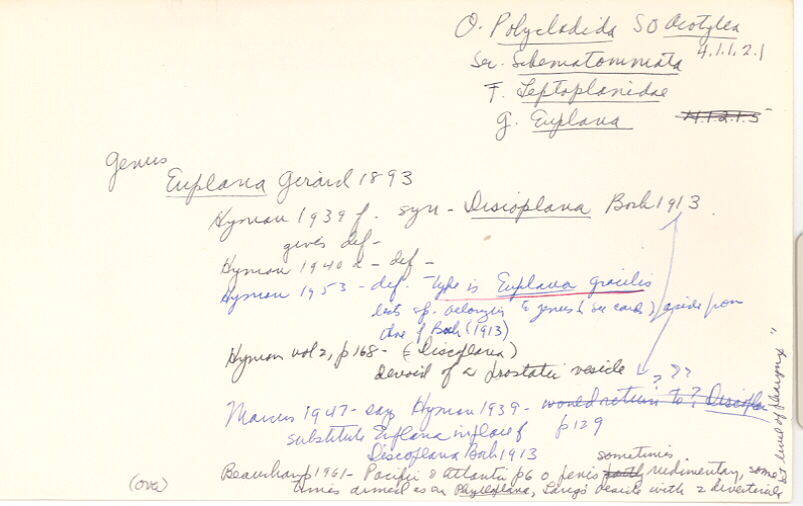 O. Polycladida SO Acotylea
4.1.1.2.1
Ser. Schematommata
F. Leptoplanidae
g. Euplana 4.1.2.1.5
genus
Euplana Girard 1893
Hyman 1939 f. syn - Discoplana Bock 1913
gives def -
Hyman 1940 a - def -
Hyman 1953 - def. Type is Euplana gracilis
lists sp. belonging to genus (on cards) aside from
those of Bock (1913)
Hyman vol 2, p 168 - (= Discoplana)
devoid of a prostatic vesicle
? ? ?
Marcus 1947 - says Hyman 1939 - would return to? Discoplan
substitute Euplana in place of p 129
Discoplana Bock 1913
Beauchamp 1961 - Pacific & Atlantic p 6 penis partly sometimes rudimentary, some
times armed as in Phylloplana, Lang's vesicle with 2 diverticula
at level of pharynx"
(over)